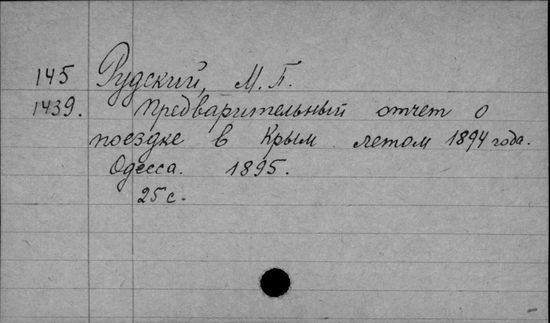 145 Рудский, М. П.
1439. Предварительный отчет о
поездке в Крым летом 1894 года.
Одесса. 1895.
25 с.